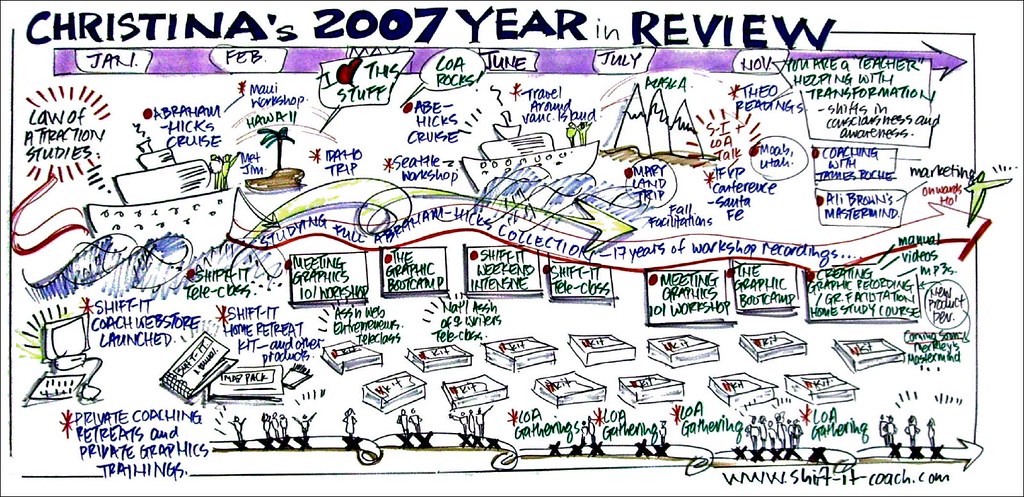 CHRISTINA's 2007 YEAR in REVIEW
JAN.
FEB.
JUNE
JULY
NOV.
I
THIS
STUFF!
LOA
ROCKS!
"YOU ARE a TEACHER"
HELPING WITH
TRANSFORMATION
- shifts in
consciousness and
awareness.
LAW of
ATTRACTION
STUDIES.
ABRAHAM
-HICKS
CRUISE
Maui
Workshop.
HAWAII
Met
Jim.
IDAHO
TRIP
ABE-
HICKS
CRUISE
Seattle
Workshop
Travel
Around
Vanc. Island
ALASKA
MARY
LAND
TRIP
Fall
Facilitations
S-I +
LOA
Talk
THEO
READINGS
IFVP
Conference
-Santa
Fe
Moab,
Utah.
COACHING
WITH
JAMES ROCHE
Ali BROWN'S
MASTERMIND.
marketing
onwards
Ho!
STUDYING FULL ABRAHAM-HICKS COLLECTION - 17 years of workshop recordings....
SHIFT-IT
Tele-class.
MEETING
GRAPHICS
101 WORKSHOP
THE
GRAPHIC
BOOTCAMP
SHIFT-IT
WEEKEND
INTENSIVE
SHIFT-IT
Tele-Class.
MEETING
GRAPHICS
101 WORKSHOP
THE
GRAPHIC
BOOTCAMP
CREATING
GRAPHIC RECORDING
/GR. FACILITATION
HOME STUDY COURSE
manual
videos
mp3s.
New
Product
Dev.
Mastermind
SHIFT-IT
COACH WEBSTORE
LAUNCHED.
SHIFT-IT
HOME RETREAT
KIT - and other
products.
Ass'n Web
Entrepreneurs.
Teleclass
Nat'l Ass'n
Tele-class.
SHIFT-IT
MAP PACK
KIT
KIT
KIT
KIT
KIT
KIT
KIT
KIT
KIT
KIT
KIT
KIT
KIT
PRIVATE COACHING
RETREATS and
PRIVATE GRAPHICS
TRAININGS.
LOA
Gatherings
LOA
Gathering
LOA
Gathering
LOA
Gathering
www.shift-it-coach.com